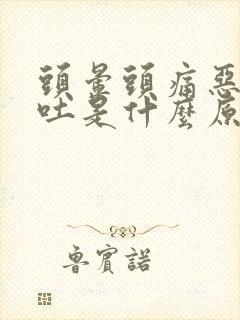 頭暈頭痛惡
吐是什麼原
魯賓諾